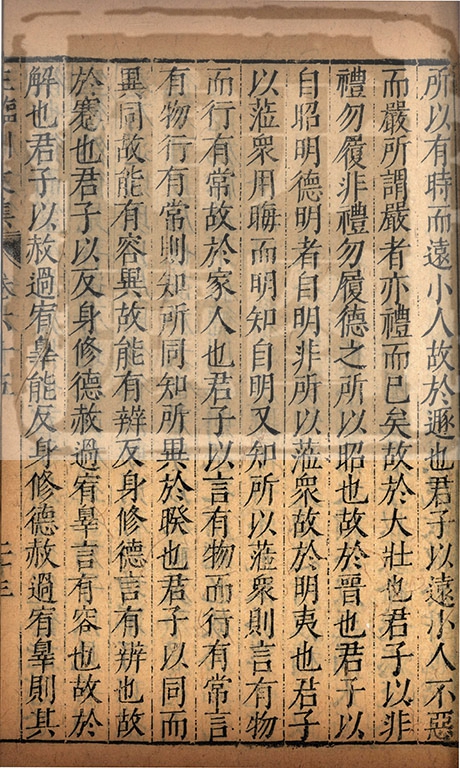 所以有時而遠小人故於遯也君子以遠小人不惡
而嚴所謂嚴者亦禮而已矣故於大壯也君子以非
禮勿履非禮勿履德之所以昭也故於晉也君子以
自昭明德明者自明非所以蒞衆故於明夷也君子
以蒞衆用晦而明知自明又知所以蒞衆則言有物
而行有常故於家人也君子以言有物而行有常言
有物行有常則知所同知所異於睽也君子以同而
異同故能有容異故能有辨反身修德言有辨也故
於蹇也君子以反身修德赦過宥辠言有容也故於
解也君子以赦過宥辠能反身修德赦過宥辠則其
王臨川文集 卷六十五 二十三